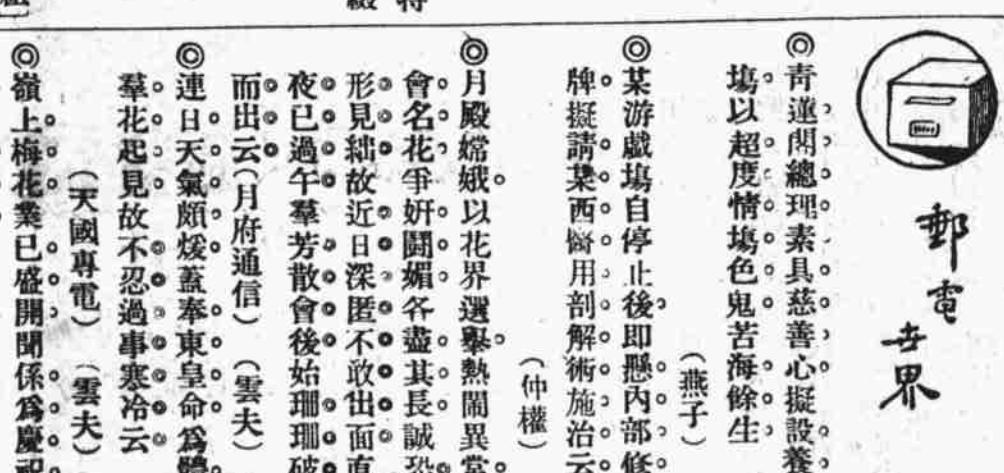 郵電世界
◎青蓮閣總理素具慈善心擬設養
塲以超度情塲色鬼苦海餘生
（燕子）
◎某游戲塲自停止後即懸內部修
牌擬請某西醫用剖解術施治云
（仲權）
◎月殿嫦娥以花界選舉熱閙異常
會名花爭妍鬬媚各盡其長誠恐
形見絀故近日深匿不敢出面直
夜已過午羣芳散會後始珊珊破
而出云（月府通信）（雲夫）
◎連日天氣頗煖蓋奉東皇命爲體
羣花起見故不忍過事寒冷云
（天國專電）（雲夫）
◎嶺上梅花業已盛開聞係爲慶祝